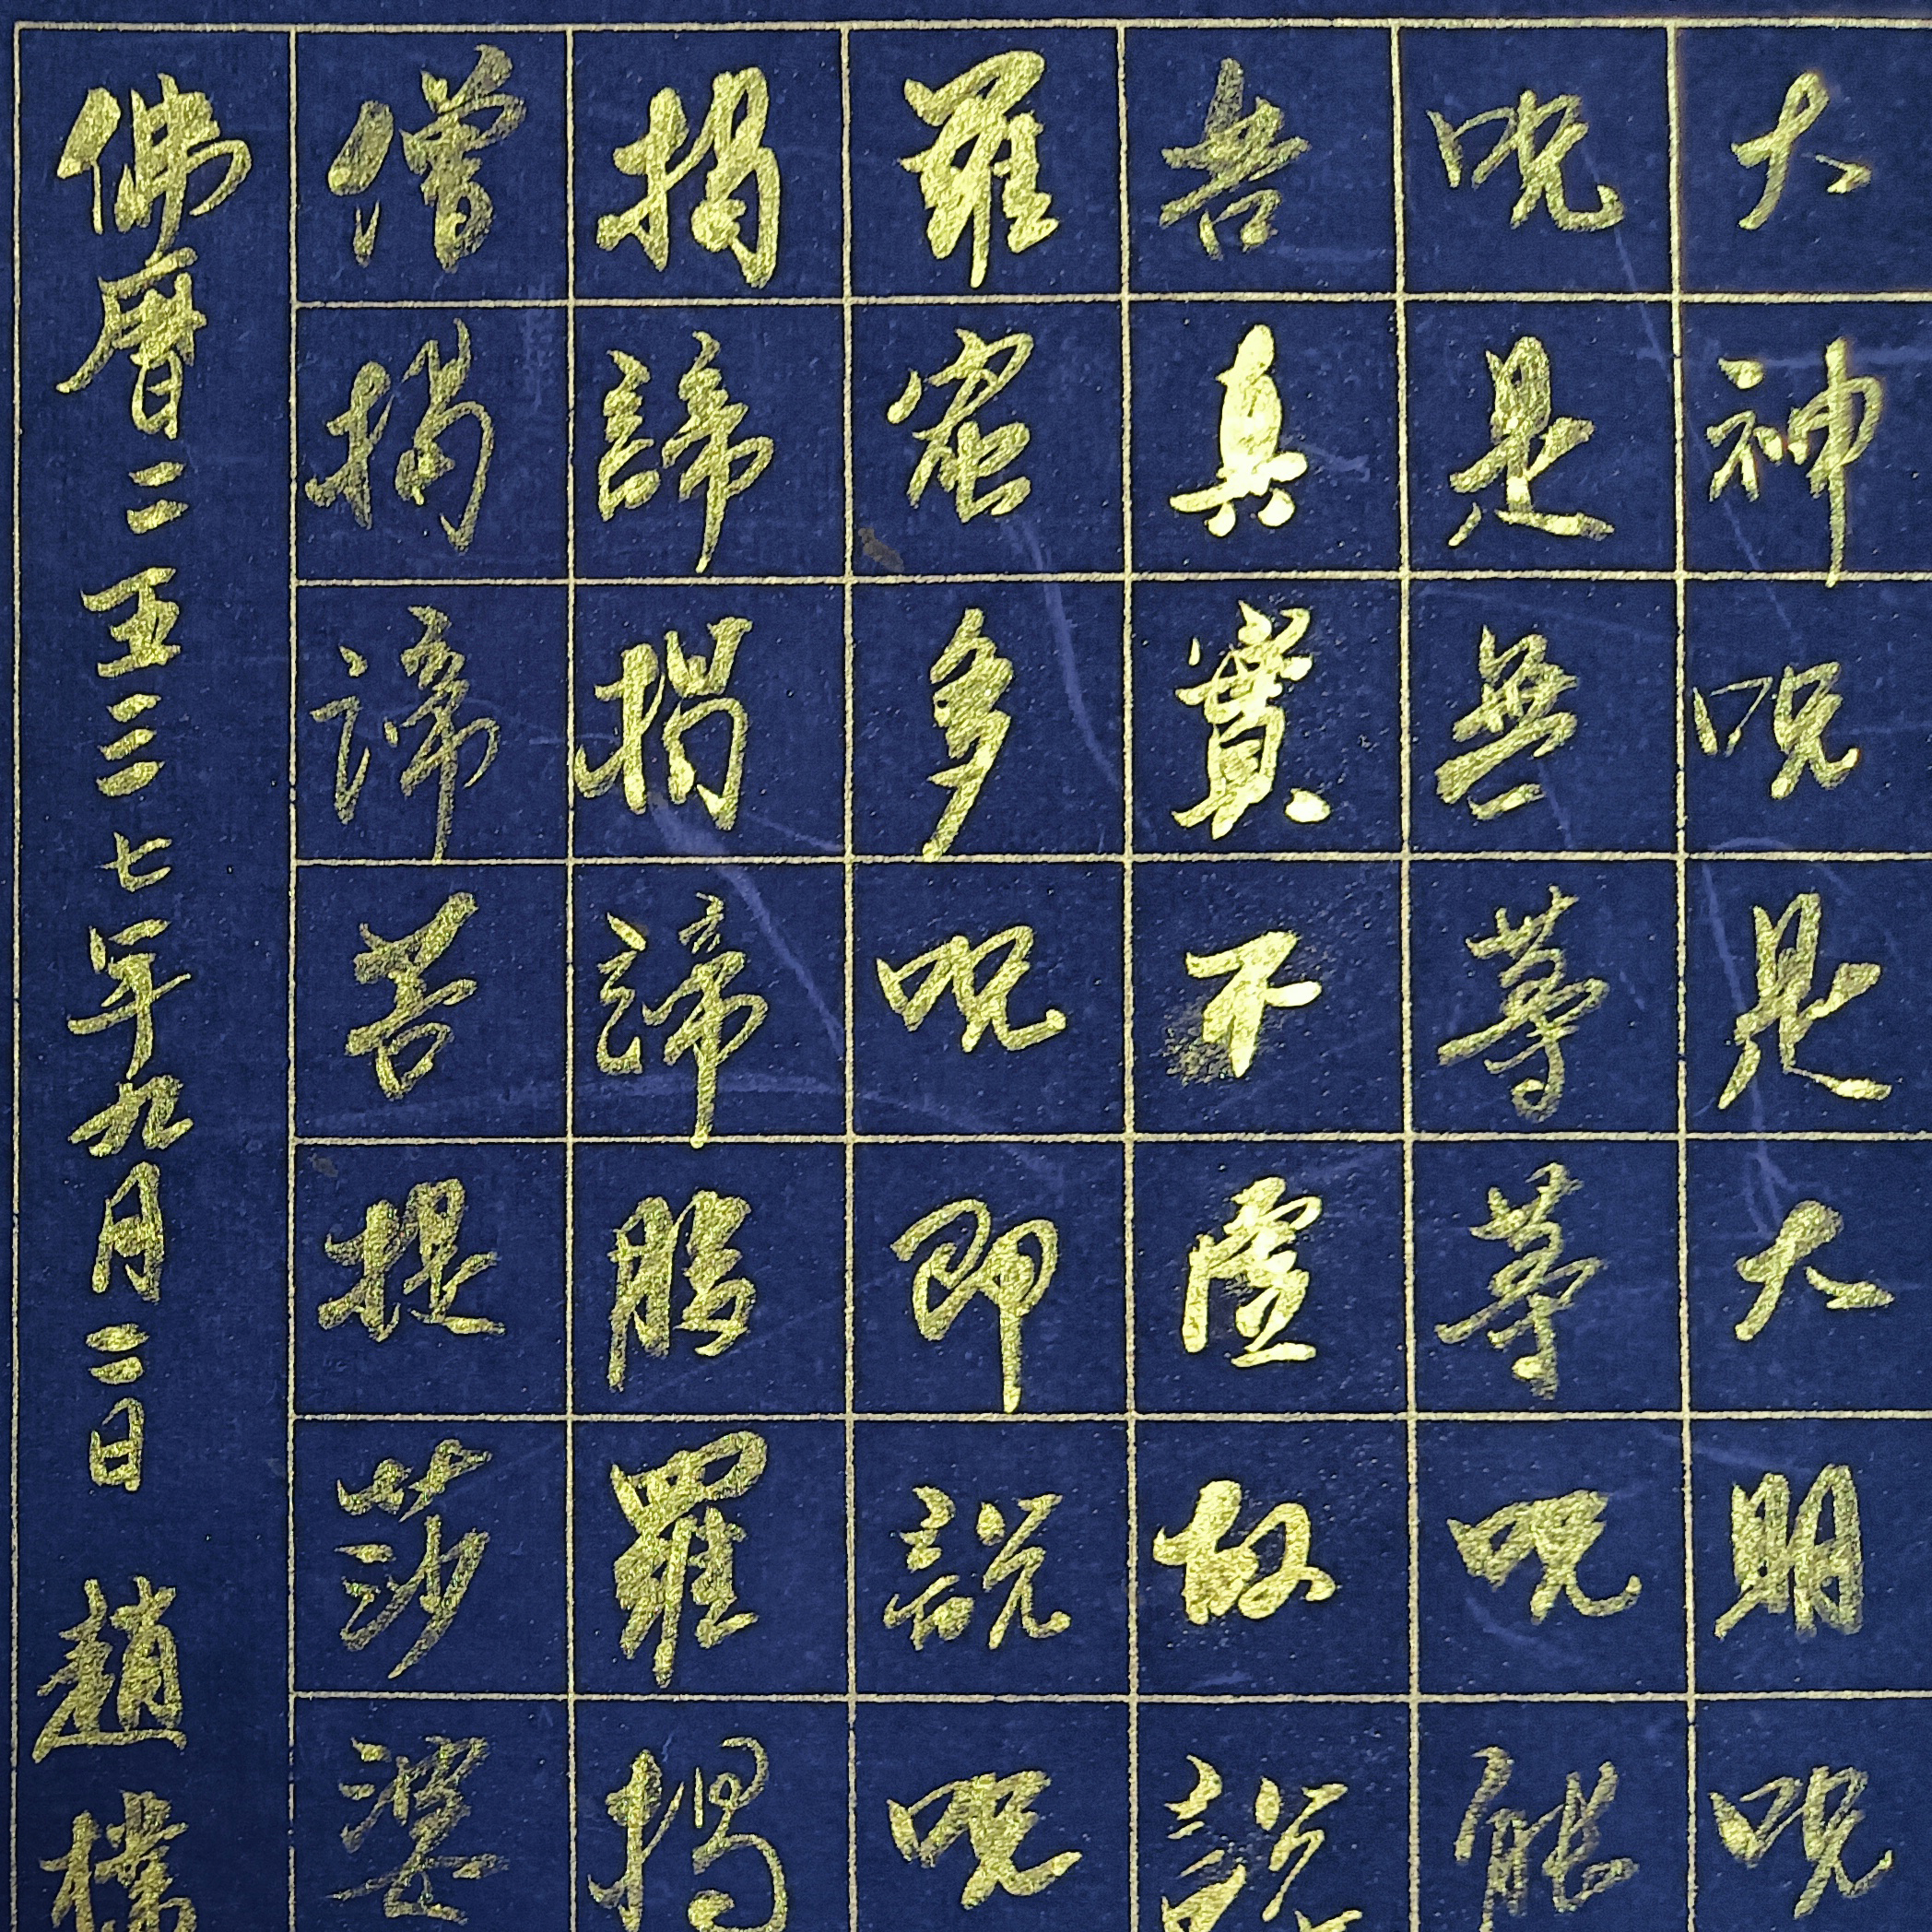 大神呪是大明呪
呪是無等等呪能
苦真實不虛故說
羅蜜多呪即說呪
揭諦揭諦般羅揭
僧揭諦菩提莎婆
佛暦二五三七年九月二日 趙樸